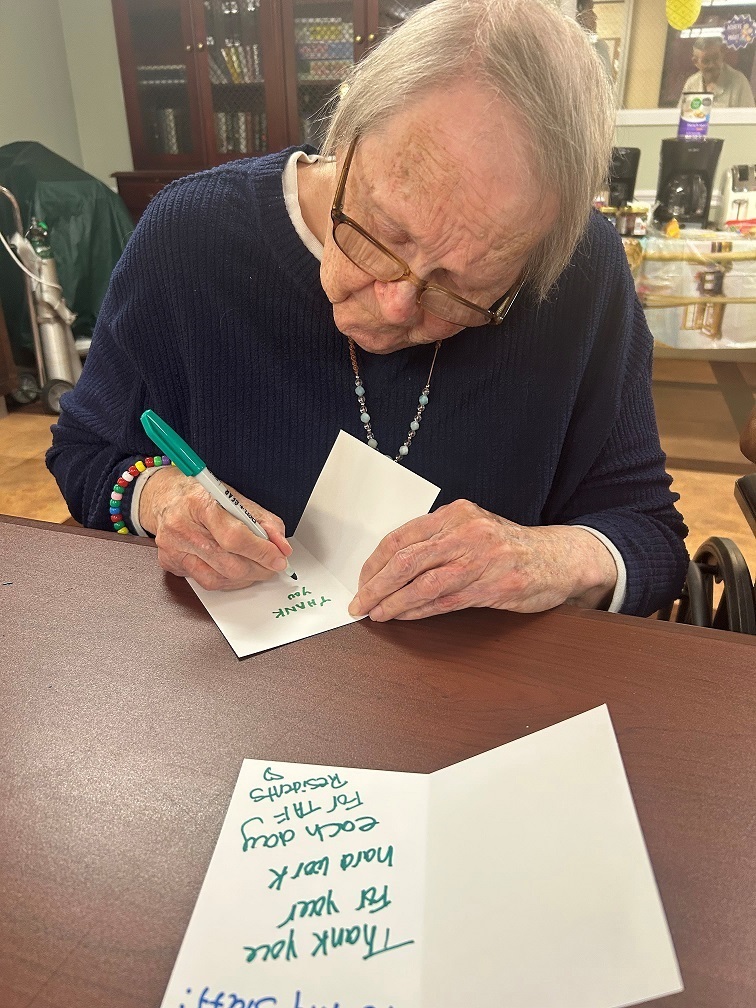 THANK
YOU
my Staff!
Thank you
For your
hard work
each day
For TAF
Residents